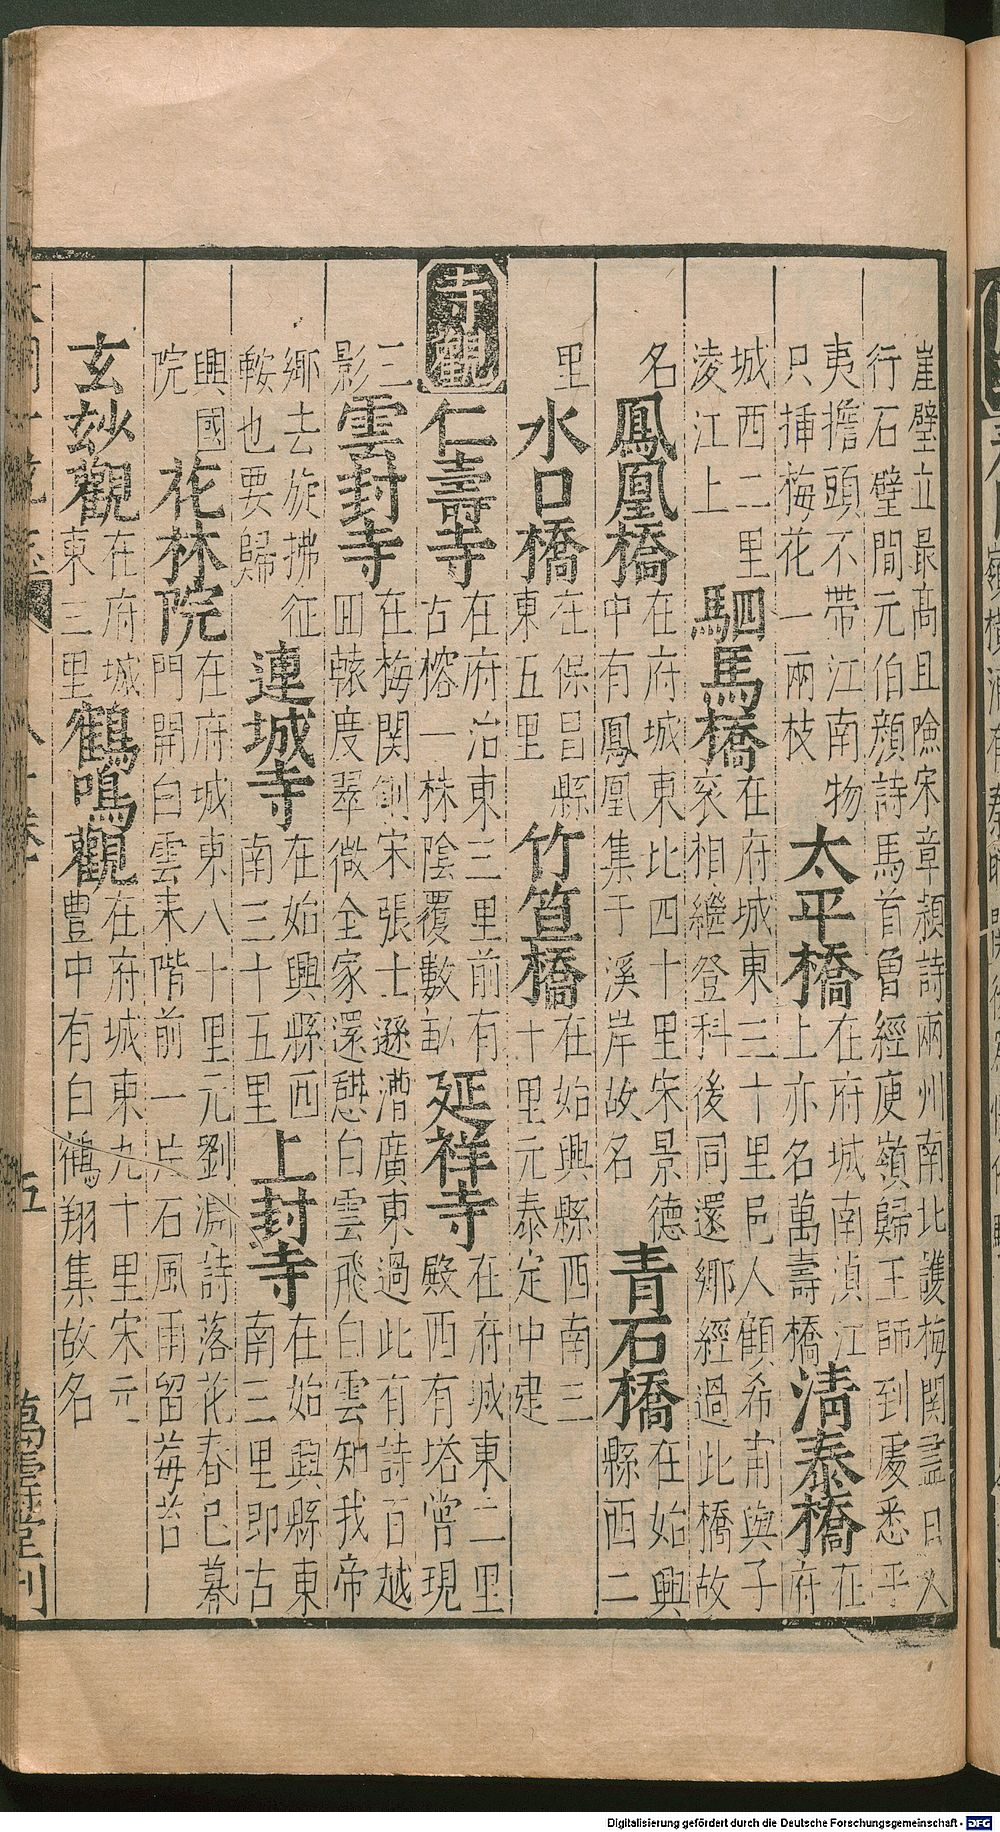 崖壁立最髙且險宋章頴詩兩州南北護梅関盡日人
行石壁間元伯顔詩馬首曾經庾嶺歸王師到處悉平
夷擔頭不帶江南物
只揷梅花一兩枝
太平橋
在府城南湞江
上亦名萬壽橋
清泰橋
在
府
城西二里
淩江上
駟馬橋
在府城東三十里邑人顧希甫與子
衮相繼登科後同還鄉經過此橋故
名
鳳凰橋
在府城東北四十里宋景德
中有鳳凰集于溪岸故名
青石橋
在始興
縣西二
里
水口橋
在保昌縣
東五里
竹笪橋
在始興縣西南三
十里元泰定中建
寺觀
仁壽寺
在府治東三里前有
古榕一株陰覆數畝
延祥寺
在府城東二里
殿西有塔嘗現
三
影
雲封寺
在梅関側宋張士遜漕廣東過此有詩百越
回轅度翠微全家還憇白雲飛白雲知我帝
鄉去旋拂征
鞍也要歸
連城寺
在始興縣西
南三十五里
上封寺
在始興縣東
南三里即古
興國
院
花林院
在府城東八十里元劉淵詩落花春已暮
門開白雲来階前一片石風雨留莓苔
玄妙觀
在府城
東三里
鶴鳴觀
在府城東九十里宋元
豊中有白鶴翔集故名
五
萬壽堂刊
Digitalisierung gefördert durch die Deutsche Forschungsgemeinschaft - DFG